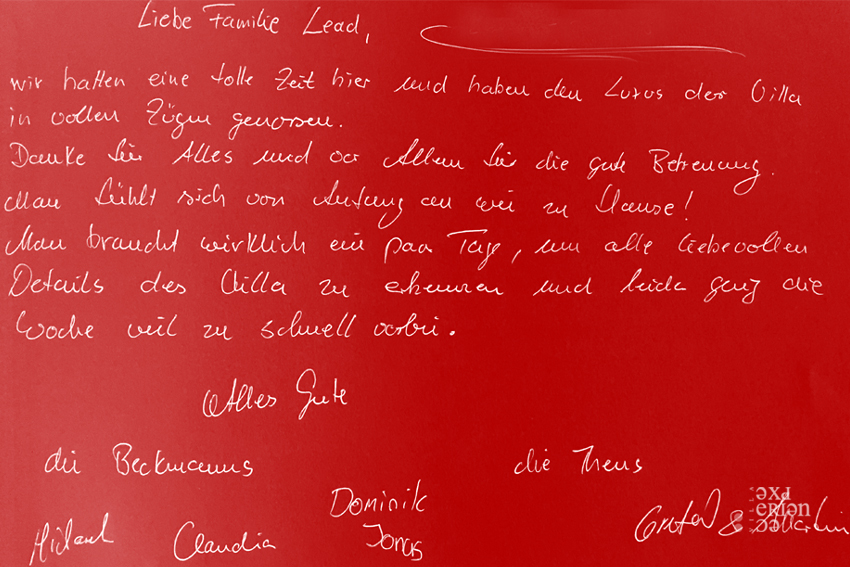 Liebe Familie Lead,
wir hatten eine tolle Zeit hier und haben den Luxus der Villa
in vollen Zügen genossen.
Danke für Alles und vor Allem für die gute Betreuung.
Man fühlt sich von Anfang an wie zu Hause!
Man braucht wirklich ein paar Tage, um alle liebevollen
Details des Villa zu erkennen und leider ging die
Woche viel zu schnell vorbei.
Alles Gute
die Beckmanns
die Thens
Michael Claudia Dominik Jonas
& Martin